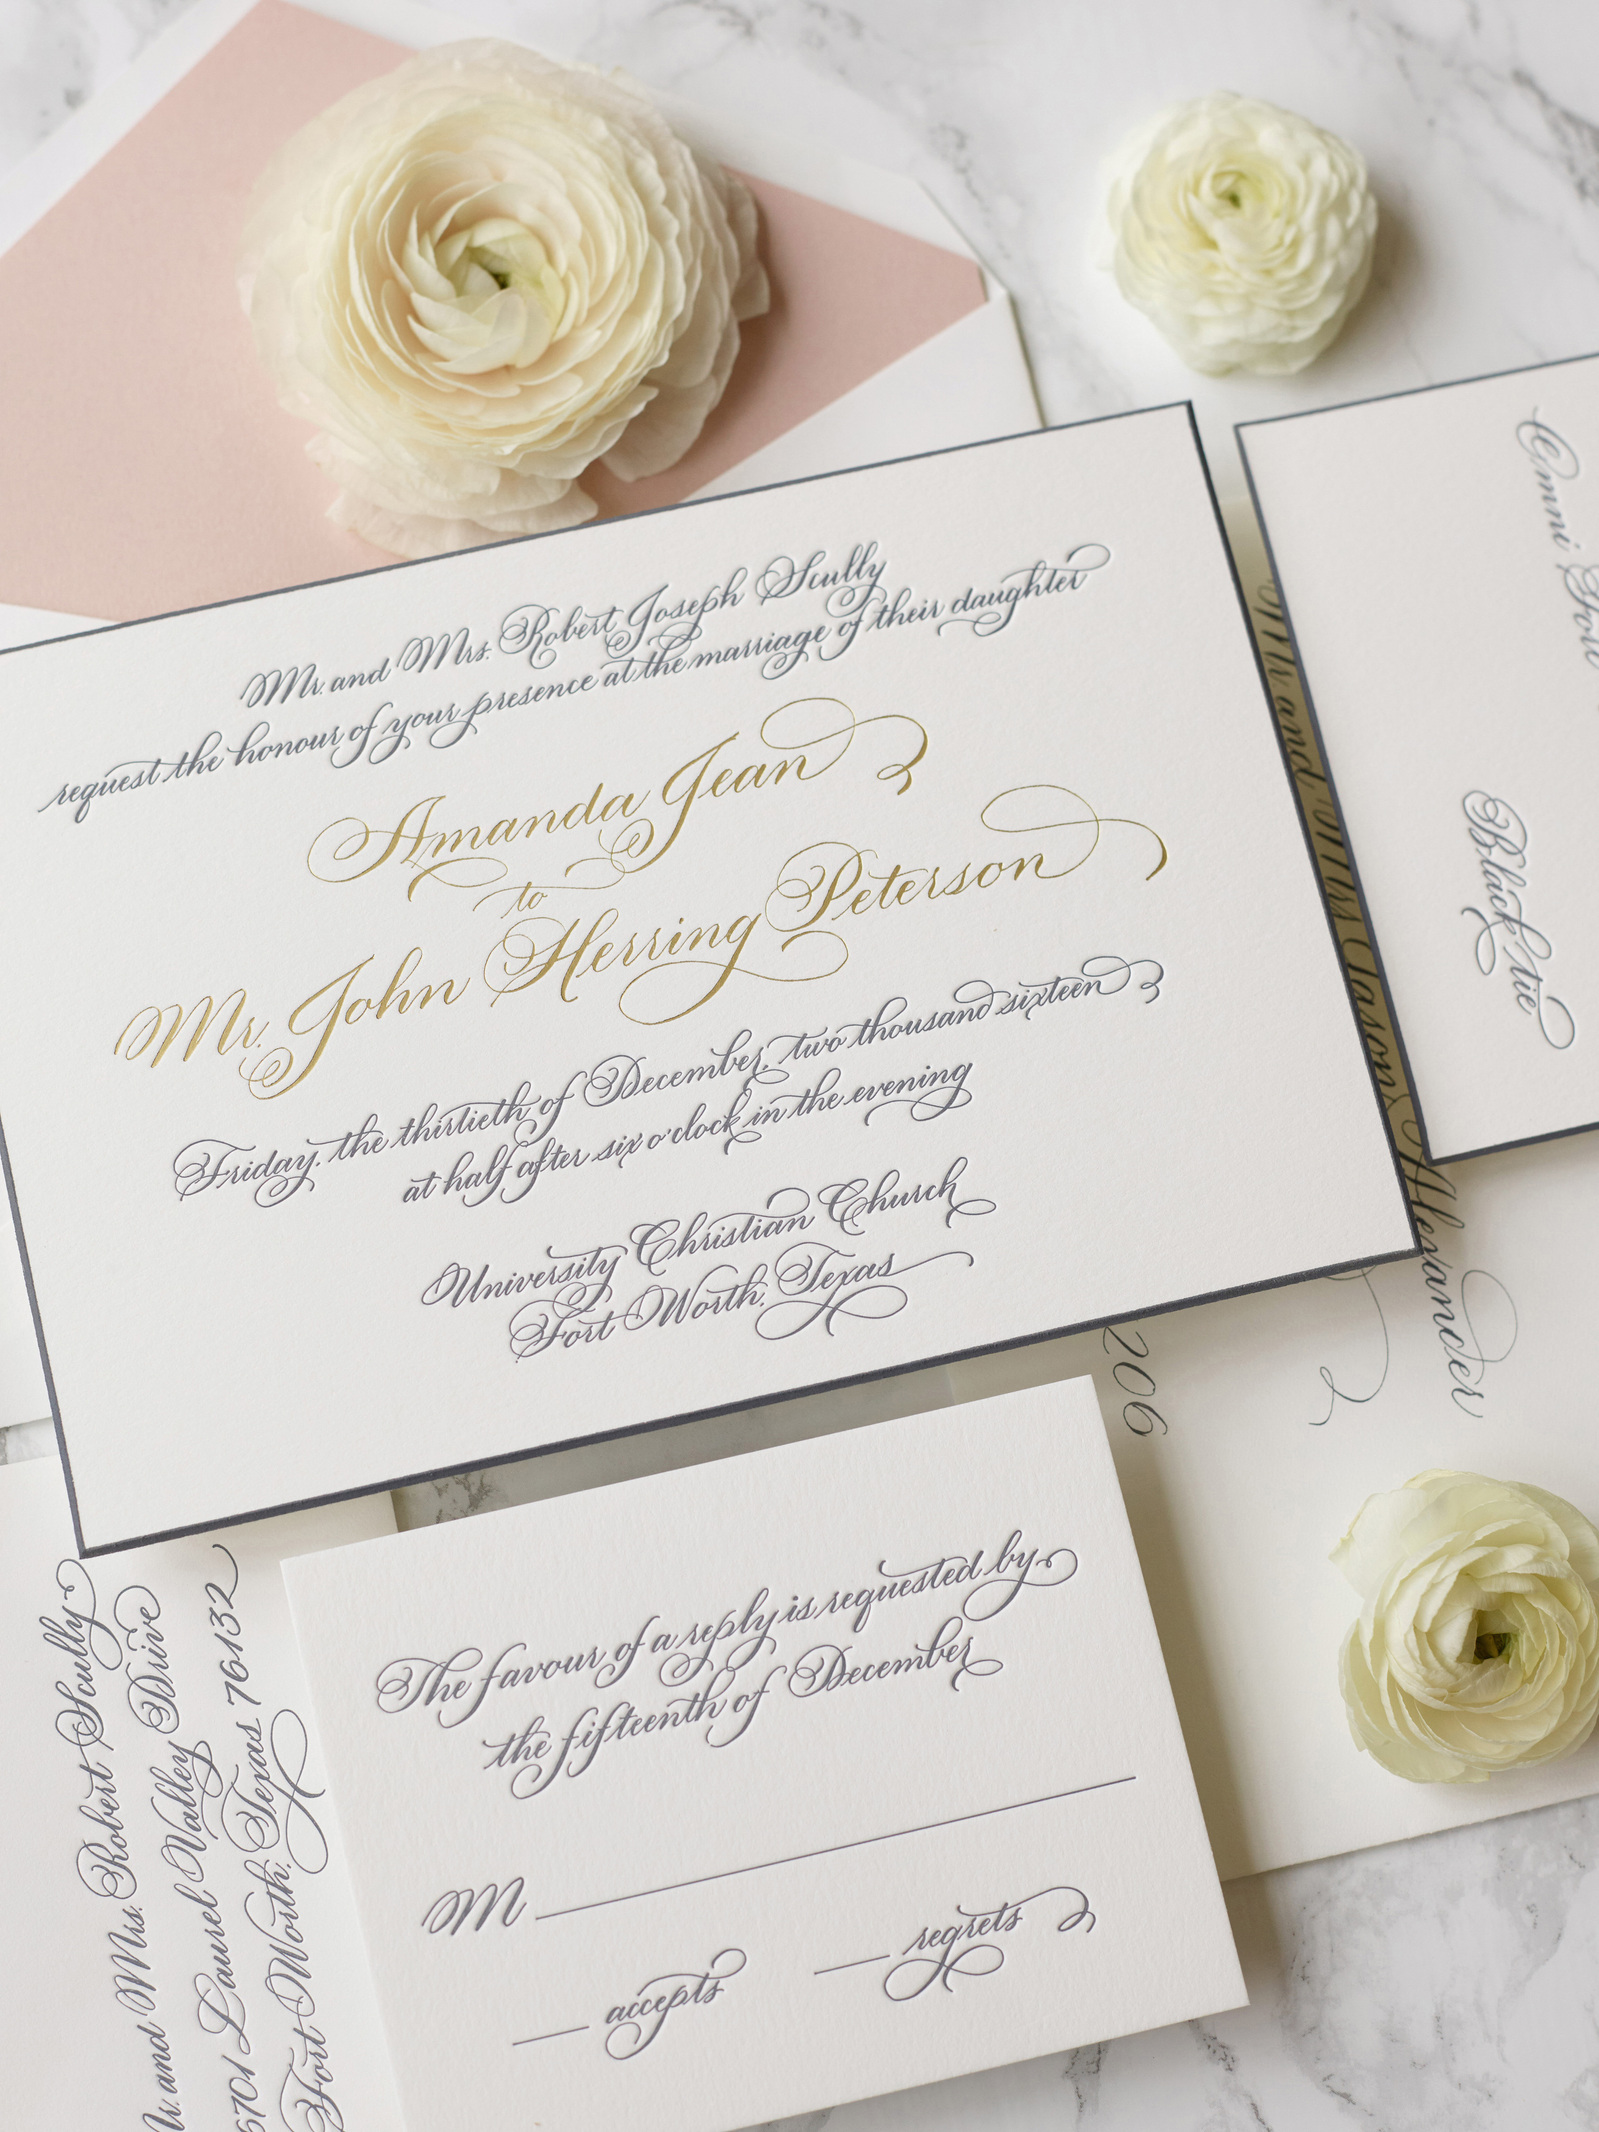 Mr. and Mrs. Robert Joseph Scully
request the honour of your presence at the marriage of their daughter
Amanda Jean
to
Mr. John Herring Peterson
Friday, the thirtieth of December, two thousand sixteen
at half after six o'clock in the evening
University Christian Church
Fort Worth, Texas
Omni Fort
Black tie
and Mrs. Jason Alexander
206
The favour of a reply is requested by
the fifteenth of December
M
accepts
regrets
Mr. and Mrs. Robert Scully
6701 Laurel Valley Drive
Fort Worth, Texas 76132